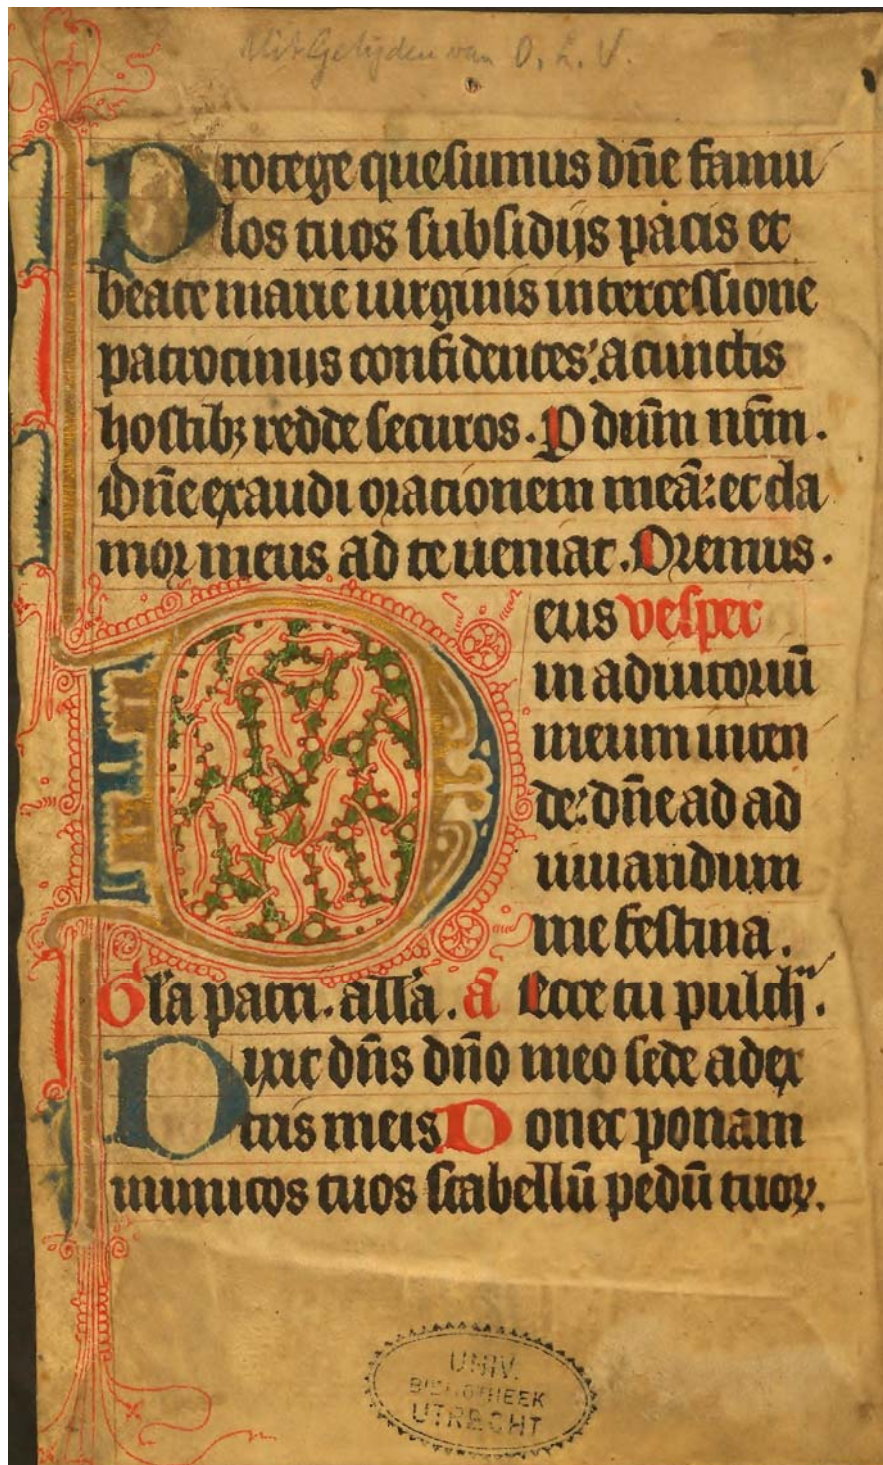 Uit Getijden van O. L. V.
Protege quesumus dn̄e famu
los tuos subsidijs pacis et
beate marie uirginis intercessione
patrocinijs confidentes: a cunctis
hostibꝫ redde securos. P dn̄m nr̄m.
Dn̄e exaudi orationem meā: et cla
mor meus ad te ueniat. Oremus.
Deus vesper
in adiutoriū
meum inten
de: dn̄e ad ad
iuuandum
me festina.
Gl̄a patri. all̄a. ā Ecce tu pulch̄.
Dixit dn̄s dn̄o meo sede a dex
tris meis Donec ponam
inimicos tuos scabellū pedū tuoꝝ.
UNIV.
BIBLIOTHEEK
UTRECHT